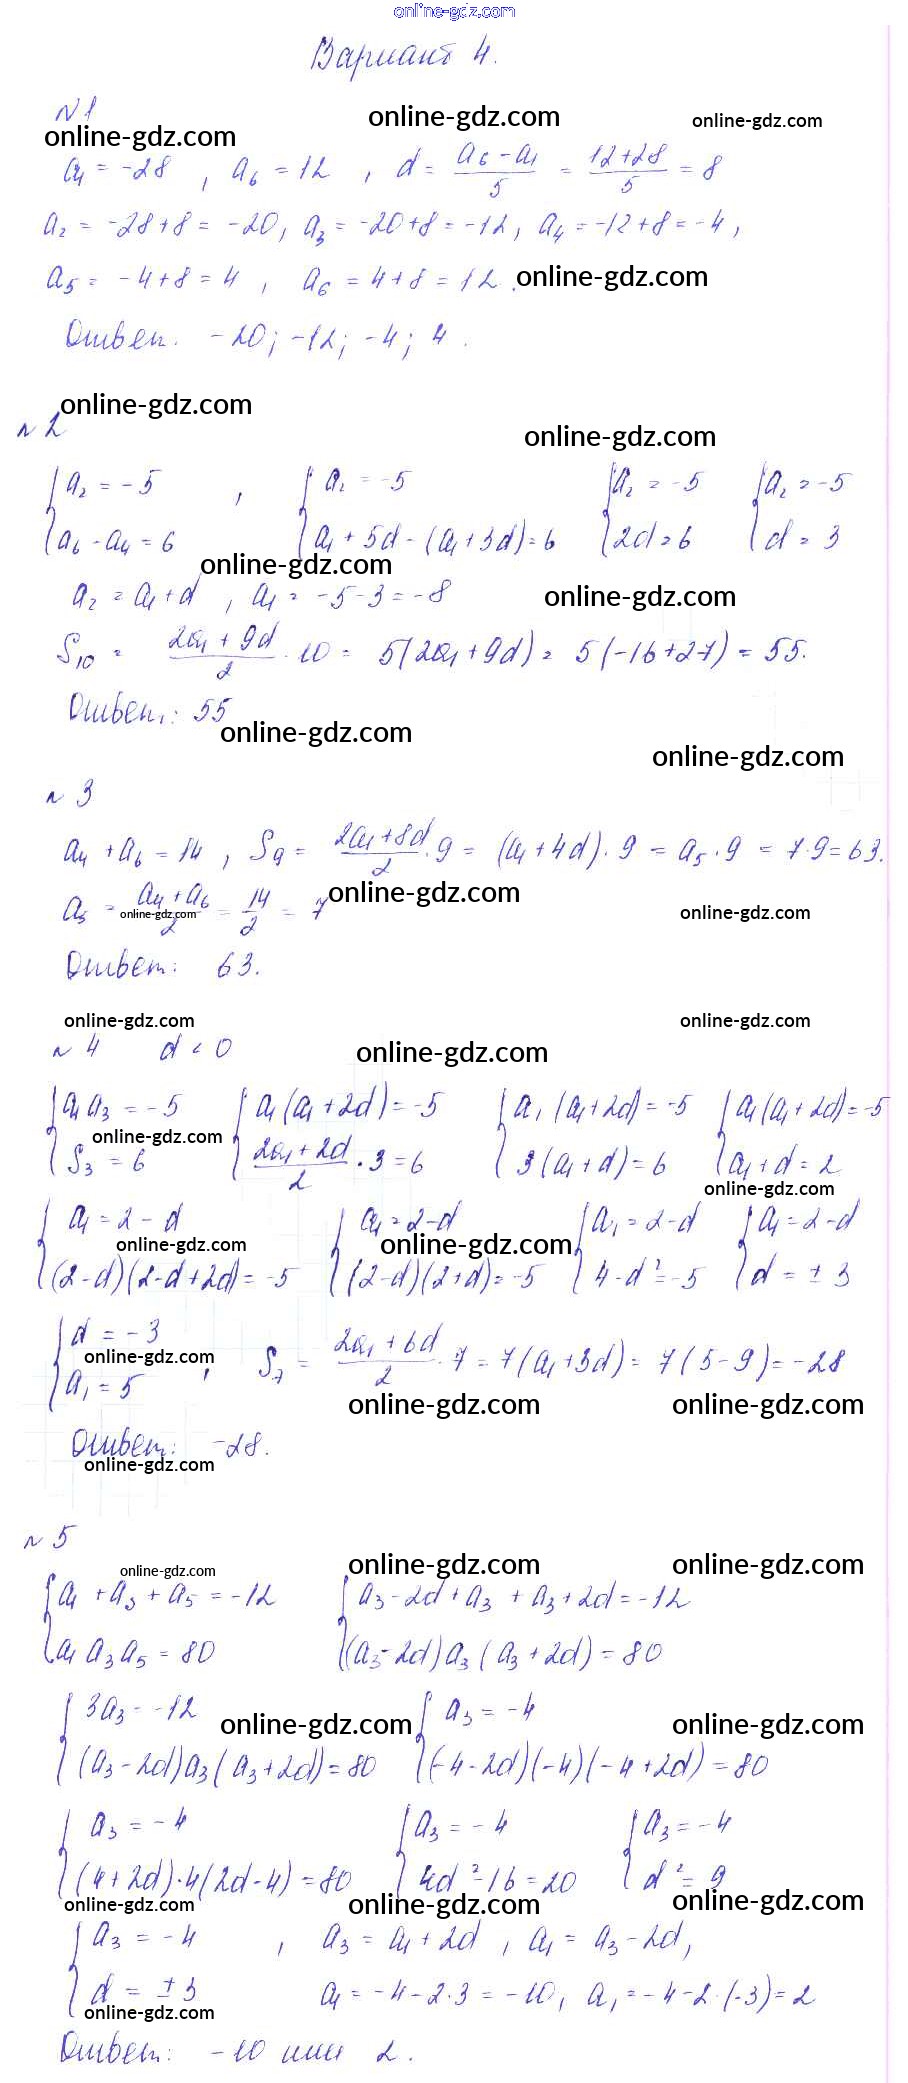 online-gdz.com
Вариант 4.
№1
online-gdz.com online-gdz.com online-gdz.com
a₁ = -28, a₆ = 12, d = (a₆ - a₁)/5 = (12+28)/5 = 8
a₂ = -28+8 = -20, a₃ = -20+8 = -12, a₄ = -12+8 = -4,
a₅ = -4+8 = 4, a₆ = 4+8 = 12. online-gdz.com
Ответ. -20; -12; -4; 4.
online-gdz.com
№2 online-gdz.com
{a₂ = -5 , {a₂ = -5 {a₂ = -5 {a₂ = -5
{a₆ - a₄ = 6 {a₁ + 5d - (a₁ + 3d) = 6 {2d = 6 {d = 3
online-gdz.com
a₂ = a₁ + d, a₁ = -5-3 = -8 online-gdz.com
S₁₀ = (2a₁ + 9d)/2 · 10 = 5(2a₁ + 9d) = 5(-16+27) = 55.
Ответ: 55
online-gdz.com online-gdz.com
№3
a₄ + a₆ = 14, S₉ = (2a₁ + 8d)/2 · 9 = (a₁ + 4d) · 9 = a₅ · 9 = 7·9 = 63.
a₅ = (a₄ + a₆)/2 = 14/2 = 7 online-gdz.com
online-gdz.com online-gdz.com
Ответ: 63.
online-gdz.com online-gdz.com
№4 d < 0 online-gdz.com
{a₁a₃ = -5 {a₁(a₁ + 2d) = -5 {a₁(a₁ + 2d) = -5 {a₁(a₁ + 2d) = -5
online-gdz.com
{S₃ = 6 {(2a₁ + 2d)/2 · 3 = 6 {3(a₁ + d) = 6 {a₁ + d = 2
online-gdz.com
{a₁ = 2 - d {a₁ = 2-d {a₁ = 2-d {a₁ = 2-d
online-gdz.com online-gdz.com
{(2-d)(2-d+2d) = -5 {(2-d)(2+d) = -5 {4-d² = -5 {d = ±3
{d = -3
online-gdz.com
{a₁ = 5 , S₇ = (2a₁ + 6d)/2 · 7 = 7(a₁ + 3d) = 7(5-9) = -28
online-gdz.com online-gdz.com
Ответ: -28.
online-gdz.com
№5
online-gdz.com online-gdz.com online-gdz.com
{a₁ + a₃ + a₅ = -12 {a₃ - 2d + a₃ + a₃ + 2d = -12
{a₁a₃a₅ = 80 {(a₃ - 2d)a₃(a₃ + 2d) = 80
{3a₃ = -12 {a₃ = -4
online-gdz.com online-gdz.com
{(a₃ - 2d)a₃(a₃ + 2d) = 80 {(-4-2d)(-4)(-4+2d) = 80
{a₃ = -4 {a₃ = -4 {a₃ = -4
{(4+2d)·4(2d-4) = 80 {4d² - 16 = 20 {d² = 9
online-gdz.com online-gdz.com online-gdz.com
{a₃ = -4 , a₃ = a₁ + 2d, a₁ = a₃ - 2d,
{d = ±3 a₁ = -4-2·3 = -10, a₁ = -4-2·(-3) = 2
online-gdz.com
Ответ: -10 или 2.